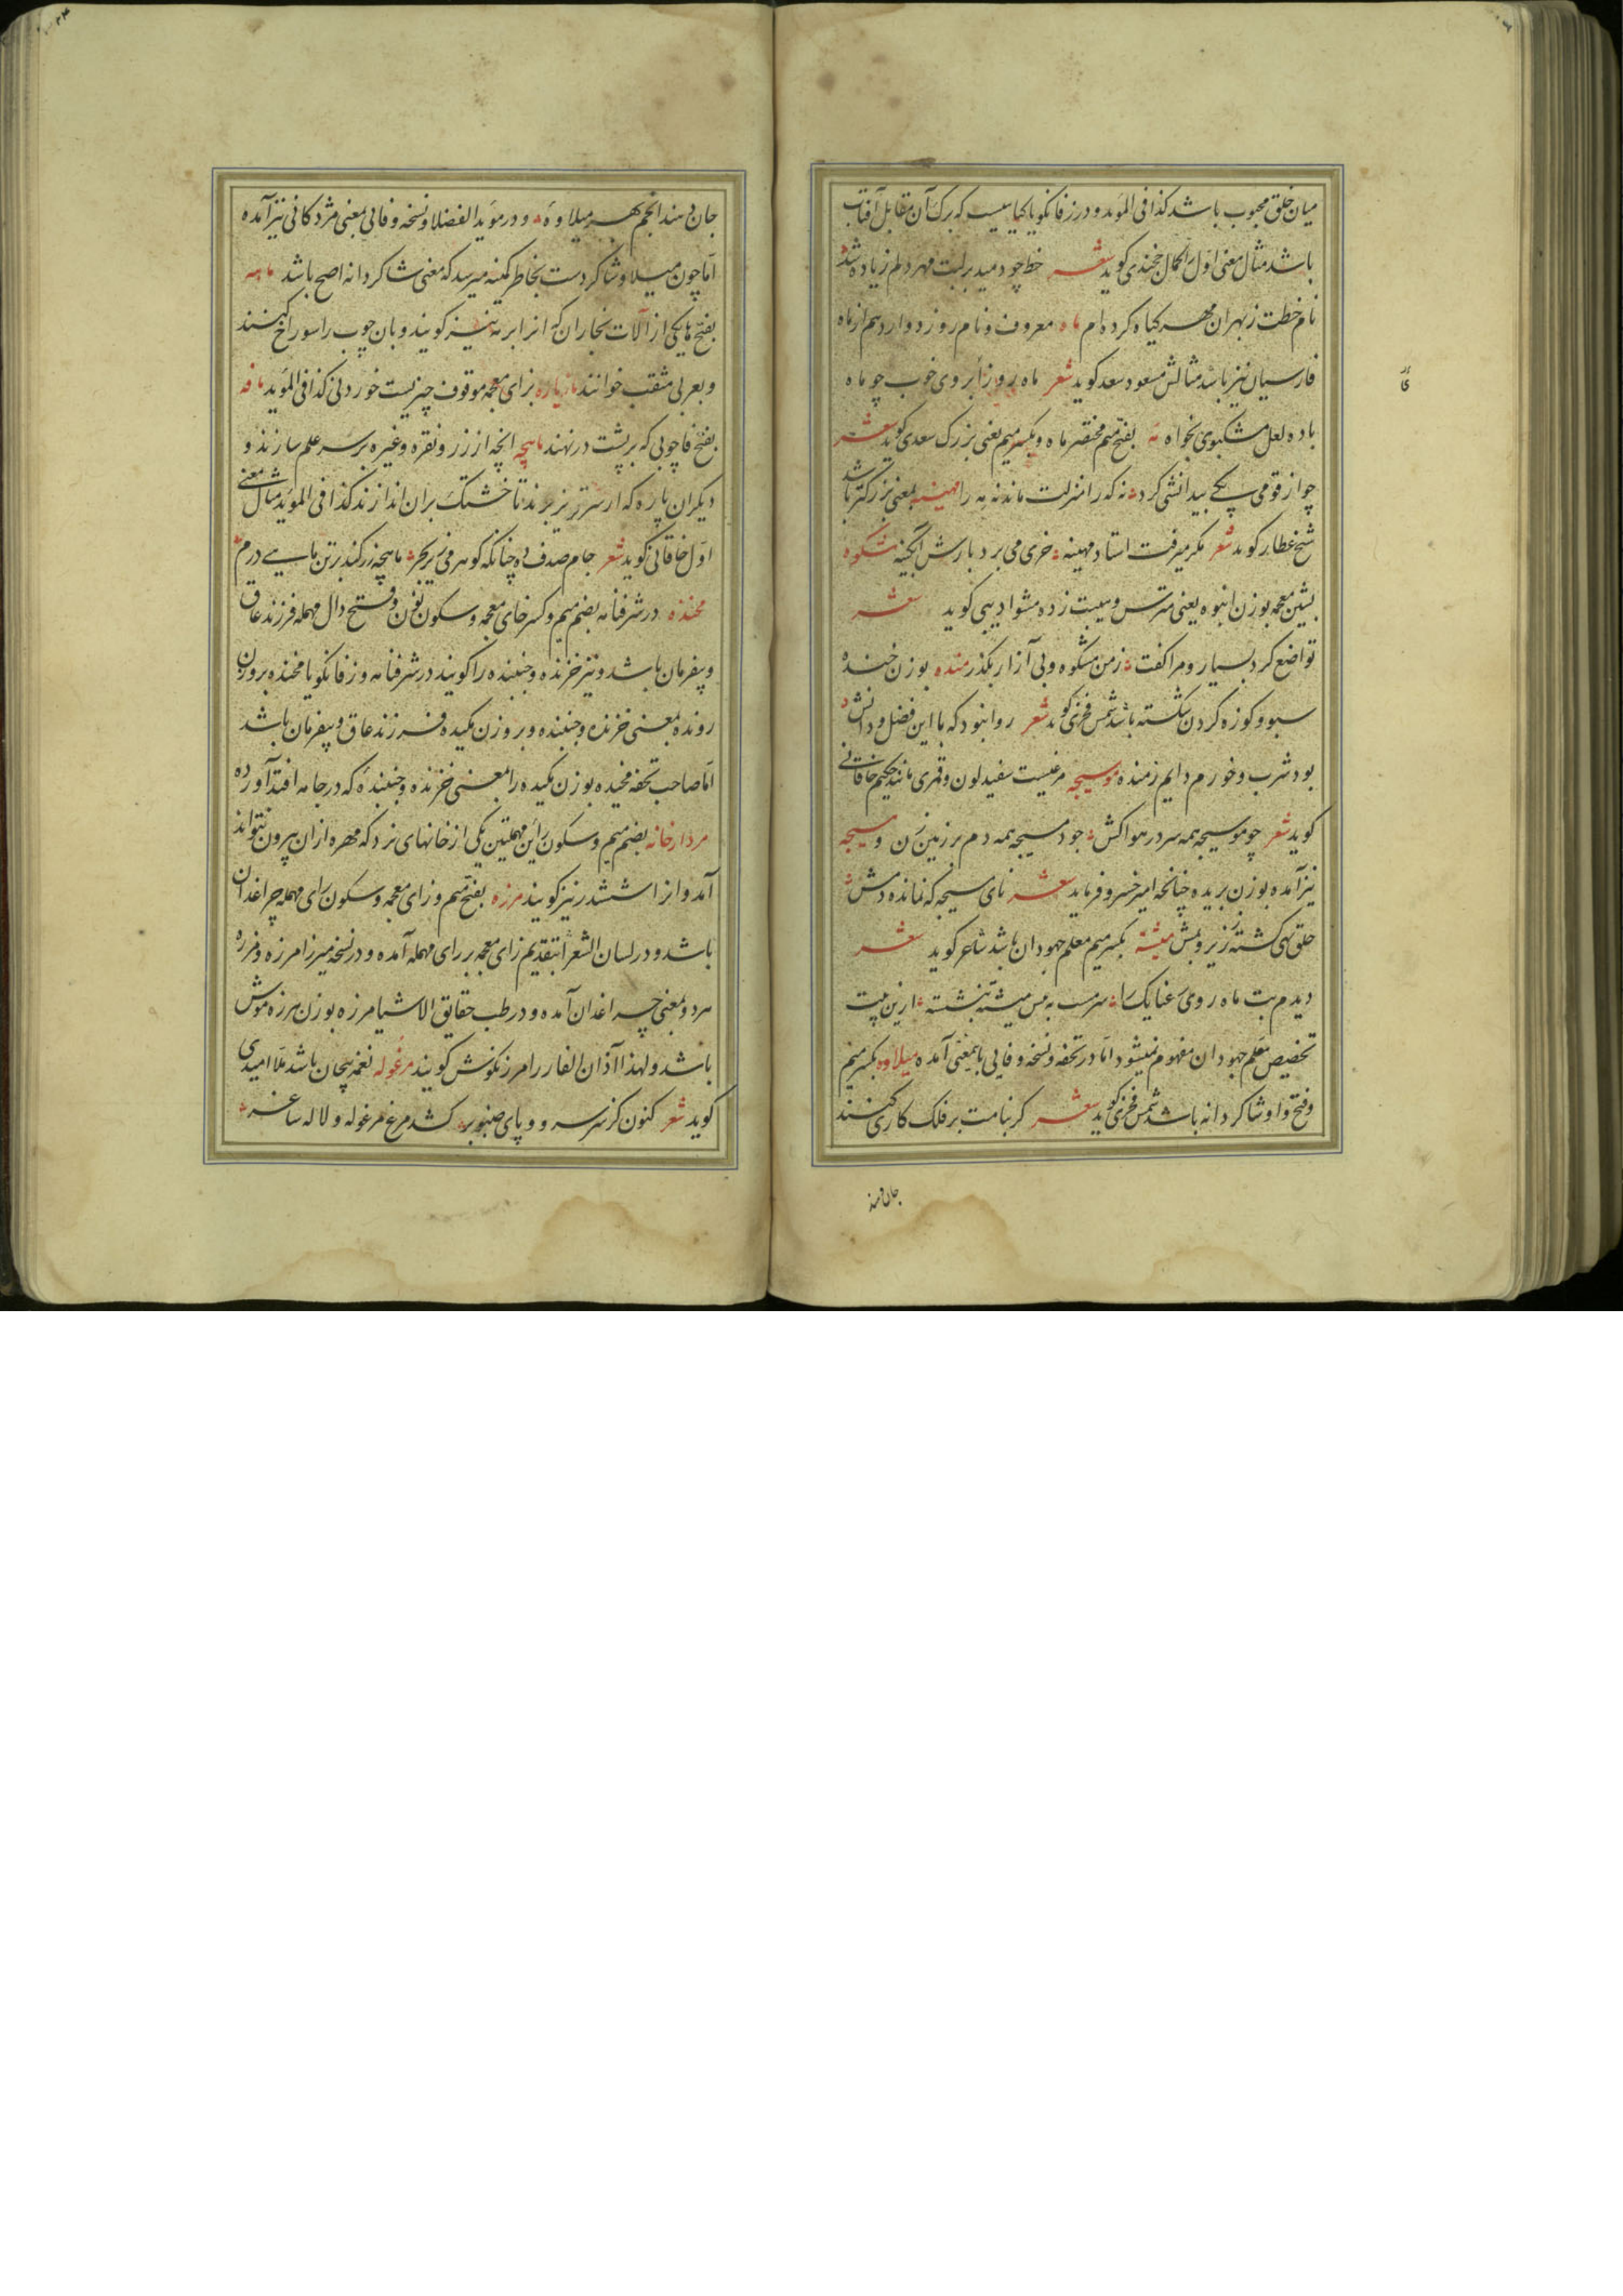 میان خلق محبوب باشد کذا فی المؤید و در زفانگویا گیاهیست که برک آن مقابل آفتاب
باشد مثال معنی اول کمال خجندی کوید شعر خط چو دمید بر لبت مهر دلم زیاده شد
نام خطت ز بهر آن مهر کیاه کرده ام ماه معروف و نام روز دوازدهم از ماه
فارسیان نیز باشد مثالش مسعود سعد کوید شعر ماه روزا بروی خوب چو ماه
باده لعل مشکبوی بخواه مه بفتح میم مختصر ماه و بکسر میم یعنی بزرک سعدی کوید شعر
چو از قومی یکی بیدانشی کرد نه که را منزلت ماند نه مه را مهینه بمعنی بزرکتر باشد
شیخ عطار کوید شعر مکر میرفت استاد مهینه خری می برد بارش آبکینه شکوه
بشین معجمه بوزن انبوه یعنی مترس و هیبت زده مشو ادیبی کوید شعر
تواضع کرد بسیار و مرا کفت ز من مشکوه و بی آزار بکذر منده بوزن خنده
سبو و کوزه کردن شکسته باشد شمس فخری کوید شعر روا نبود که با این فضل و دانش
بود شرب و خورم دایم ز منده موسیجه مرغیست سفید لون و قمری مانند حکیم خاقانی
کوید شعر چو موسیجه همه سر در هوا کش چو دمسیجه همه دم بر زمین زن و سیجه
نیز آمده بوزن بریده چنانچه امیر خسرو فرماید شعر نای سیجه که نمانده دمش
حلق تهی کشته ز زیر و بمش میشنه بکسر میم معلم جهودان باشد شاعر کوید شعر
دیدم بت ماه روی رعنا یک را سرمست به پس میشنه بنشسته ازین بیت
تخصیص معلم جهودان مفهوم نمیشود اما در تحفه و نسخه وفایی باینمعنی آمده میلاوه بکسر میم
و فتح واو شاکردانه باشد شمس فخری کوید شعر کر بنامت بر فلک کاری کنند
جان دهند انجم بهر میلاوه و در مؤید الفضلا و نسخه وفائی بمعنی مژدکانی نیز آمده
اما چون میلاو شاکردست بخاطر کمینه میرسد که معنی شاکردانه اصح باشد ماهه
بفتح ها یکی از آلات نجاران که آنرا برمه نیز کویند و بان چوب را سوراخ کنند
و بعربی مثقب خوانند مازیاره بزای معجمه موقوف چیزیست خوردنی کذا فی المؤید مافه
بفتح فا چوبی که بر پشت در نهند ماهچه انچه از زر و نقره و غیره بر سر علم سازند و
دیکر ان پاره که از سر تیر برند تا خشتک بران اندازند کذا فی المؤید مثال معنی
اول خاقانی کوید شعر جام صدف ده چنانکه کوهر می زیر بحر ماهچه زر کند بر تن ماهی درم
مخنده در شرفنامه بضم میم و کسر خای معجمه و سکون نون و فتح دال مهمله فرزند عاق
و بیفرمان باشد و نیز خزنده و جنبنده را کویند در شرفنامه و زفانکویا مخنده بروزن
رونده بمعنی خزنده و جنبنده و بروزن مکیده فرزند عاق و بیفرمان باشد
اما صاحب تحفه مخیده بوزن مکیده را بمعنی خزنده و جنبندهٔ که در جامه افتد آورده
مردارخانه بضم میم و سکون رائین مهملتین یکی از خانهای نرد که مهره از ان بیرون نتواند
آمد و انرا ششدر نیز کویند مرزه بفتح میم و زای معجمه و سکون رای مهمله چراغدان
باشد و در لسان الشعرا بتقدیم زای معجمه بر رای مهمله آمده و در نسخه میرزا مرزه و مزره
هر دو بمعنی چراغدان آمده و در طب حقایق الاشیا مرزه بوزن هرزه موش
باشد و لهذا آذان الفار را مرزنکوش کویند مرغوله نغمه پیچان باشد ملا امیدی
کوید شعر کنون کز سر سرو و پای صنوبر کشد مرغ مرغوله و لاله ساغر
جان دهند